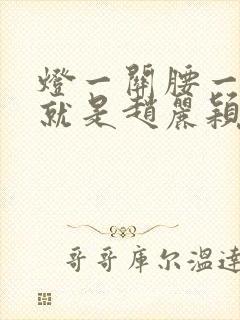 燈一關腰一
就是趙麗穎
哥哥库尔温達